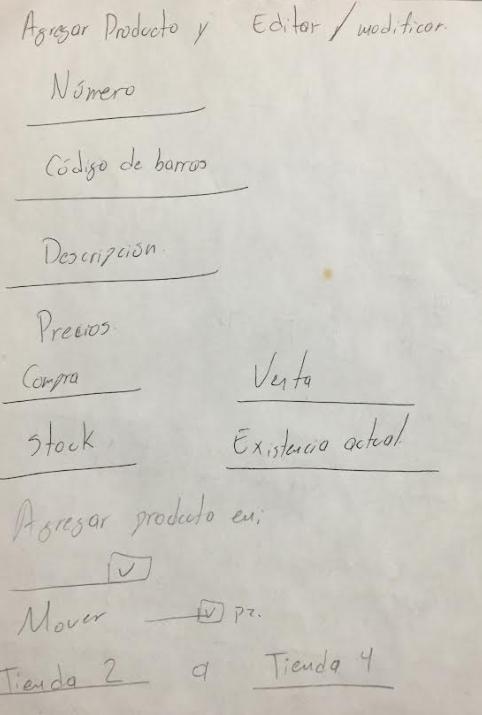 Agregar Producto y Editar / modificar.
Número
Código de barras
Descripción.
Precios.
Compra Venta
Stock Existencia actual
Agregar producto en;
Mover pz.
Tienda 2 a Tienda 4